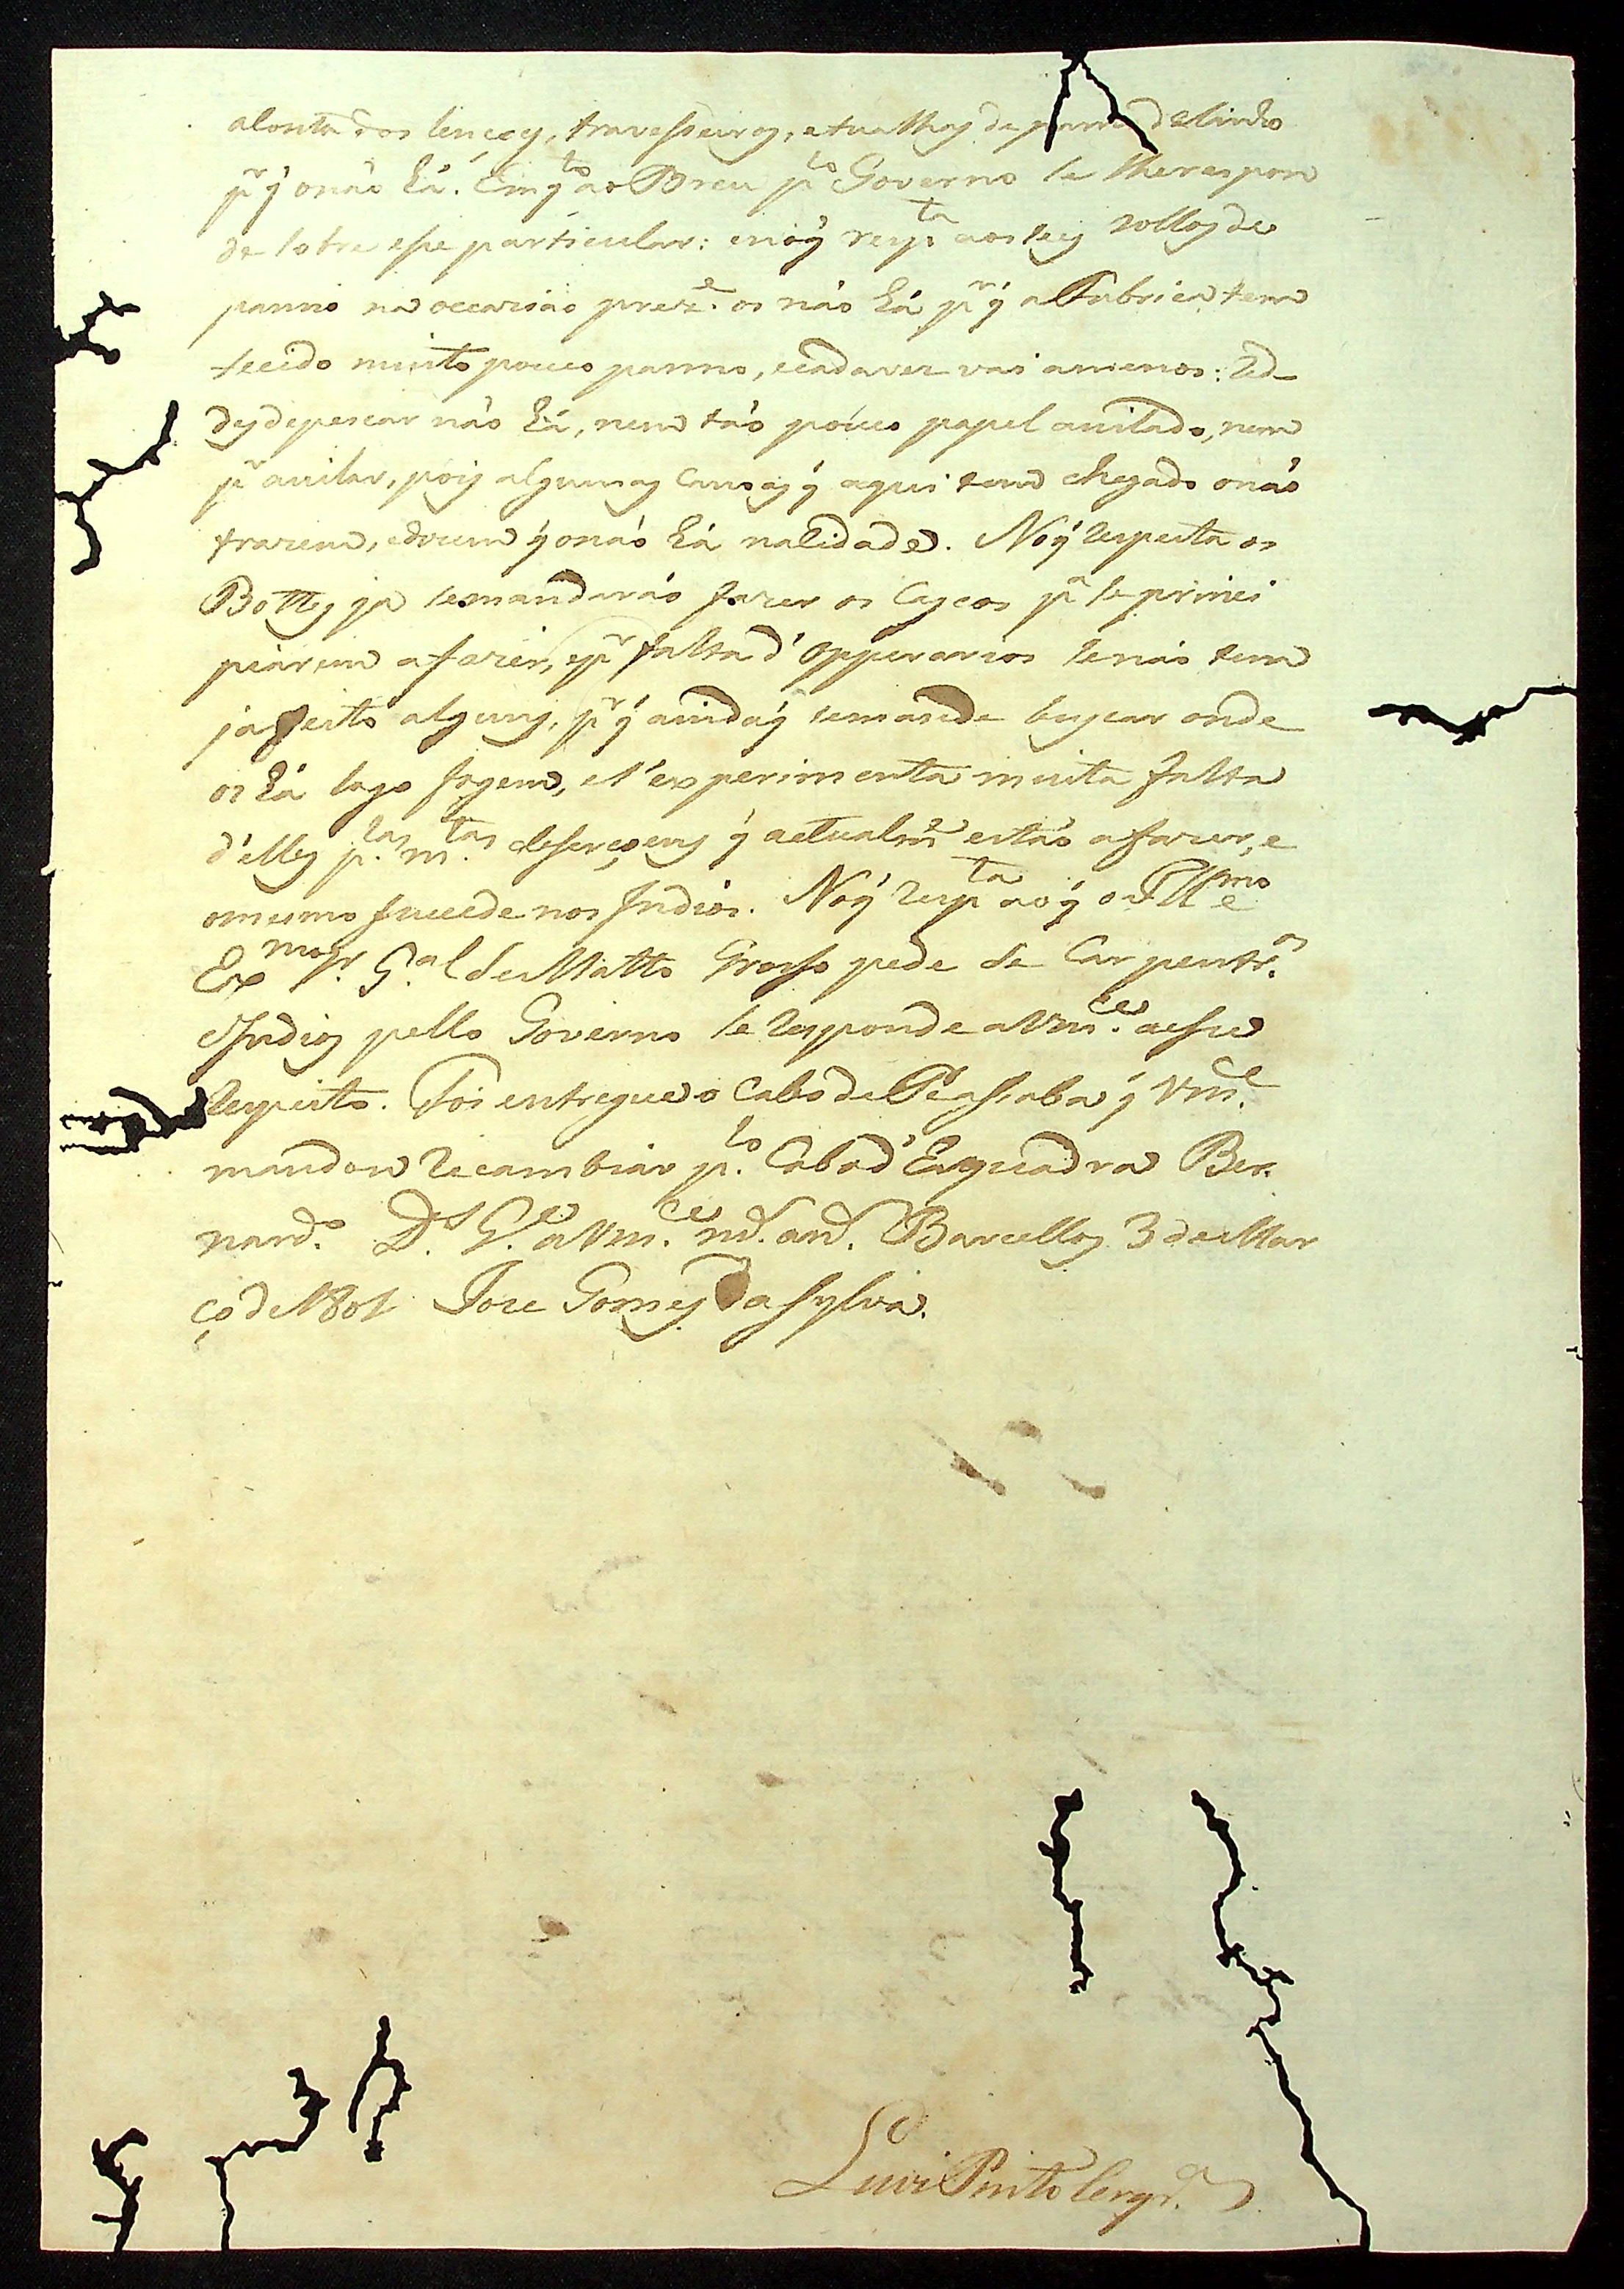 dos lençóes, travesseiros, e tualhas de panno de linho
p.r q̃ o não há. Em q.to ao Breu p.lo Governo se lhe respon
de sobre esse particular: e no q̃ resp.ta aos seis rollos de
panno na occazião prez.e os não há p.r q̃ a Fabrica tem
tecido muito pouco panno, e cada vez vai a menos: Red-
des de pescar não há, nem tão pouco papel anilado, nem
p.a anilar, pois algumas Canoas q̃ aqui tem chegado o não
trazem, e dizem q̃ o não há na Cidade. No q̃ respeita os
Bottes ja se mandarão fazer os Cascos p.a se princi
piarem a fazer, e p.r falta d'Opperarios se não tem
ja feito alguns, p.r q̃ ainda q̃ se mande buscar onde
os há logo fogem, e s'experimenta muita falta
d'elles p.las m.tas q̃ actualm.e estão a fazer, e
o mesmo succede nos Indios. No q̃ resp.ta ao q̃ o Ill.mo e
Ex.mo Sr. G.al de Matto Grosso pede de Carpentr.os
e Indios pello Governo se responde a Vm.ce a esse
respeito. Foi entregue o Cabo de Piassaba q̃ Vm.ce
mandou recambiar p.lo Cabo d'Esquadra Ber-
nard.o D.s G.e a Vm.ce m.s an.s Barcellos 3 de Mar
ço de 1801 Joze Gomes da Sylva.
Luis Pinto Cerqr.a